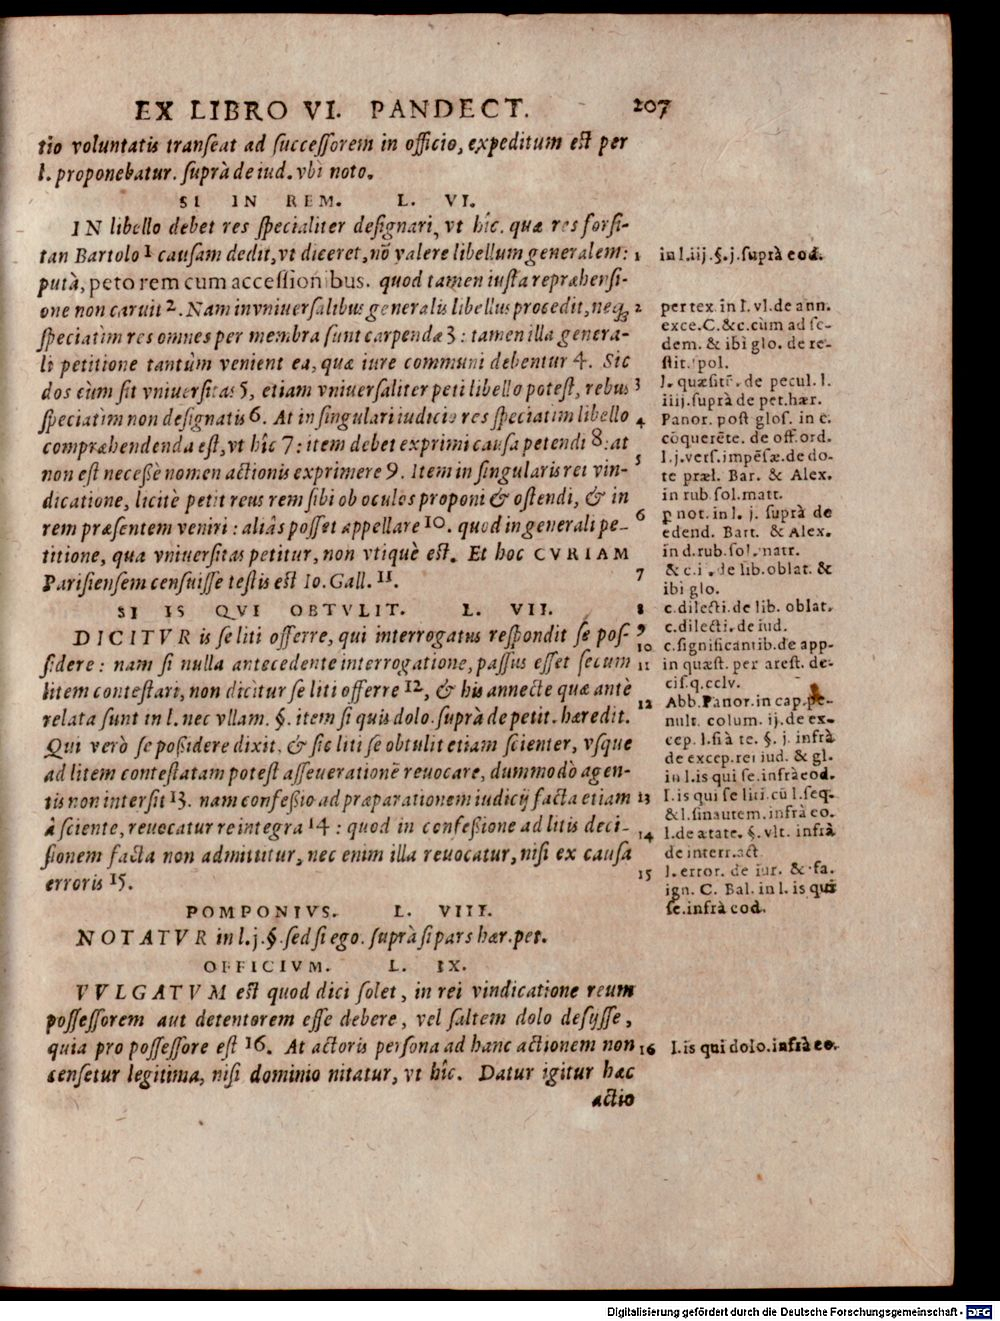 EX LIBRO VI. PANDECT. 207
tio voluntatis tranſeat ad ſucceſſorem in officio, expeditum eſt per
l. proponebatur. ſuprà de iud. vbi noto.
SI IN REM. L. VI.
IN libello debet res ſpecialiter deſignari, vt hîc. quæ res forſi-
tan Bartolo 1 cauſam dedit, vt diceret, nō valere libellum generalem:
putà, peto rem cum acceſſionibus. quod tamen iuſta repræhenſi-
one non caruit 2. Nam in vniuerſalibus generalis libellus procedit, neq;
ſpeciatìm res omnes per membra ſunt carpendæ 3: tamen illa genera-
li petitione tantùm venient ea, quæ iure communi debentur 4. Sic
dos cùm ſit vniuerſitas 5, etiam vniuerſaliter peti libello poteſt, rebus
ſpeciatìm non deſignatis 6. At in ſingulari iudicio res ſpeciatim libello
compræhendenda eſt, vt hîc 7: item debet exprimi cauſa petendi 8: at
non eſt neceßè nomen actionis exprimere 9. Item in ſingularis rei vin-
dicatione, licitè petit reus rem ſibi ob oculos proponi & oſtendi, & in
rem præſentem veniri: aliâs poſſet appellare 10. quod in generali pe-
titione, qua vniuerſitas petitur, non vtiquè eſt. Et hoc CVRIAM
Pariſienſem cenſuiſſe teſtis eſt Io. Gall. 11.
SI IS QVI OBTVLIT. L. VII.
DICITVR is ſe liti offerre, qui interrogatus reſpondit ſe poſ-
ſidere: nam ſi nulla antecedente interrogatione, paſſus eſſet ſecum
litem conteſtari, non dicitur ſe liti offerre 12, & his annecte quæ antè
relata ſunt in l. nec vllam. §. item ſi quis dolo. ſuprà de petit. hæredit.
Qui verò ſe poßidere dixit, & ſic liti ſe obtulit etiam ſcienter, vſque
ad litem conteſtatam poteſt aſſeuerationē reuocare, dummodò agen-
tis non interſit 13. nam confeßio ad præparationem iudicij facta etiam
à ſciente, reuocatur re integra 14: quod in confeßione ad litis deci-
ſionem facta non admittitur, nec enim illa reuocatur, niſi ex cauſa
erroris 15.
POMPONIVS. L. VIII.
NOTATVR in l. j. §. ſed ſi ego. ſuprà ſi pars hær. pet.
OFFICIVM. L. IX.
VVLGATVM eſt quod dici ſolet, in rei vindicatione reum
poſſeſſorem aut detentorem eſſe debere, vel ſaltem dolo deſijſſe,
quia pro poſſeſſore eſt 16. At actoris perſona ad hanc actionem non
cenſetur legitima, niſi dominio nitatur, vt hîc. Datur igitur hæc
actio
1 in l. iij. §. j. ſuprà eod.
2 per tex. in l. vl. de ann.
exce. C. & c. cùm ad ſe-
dem. & ibi glo. de re-
ſtit. ſpol.
3 l. quæſitū. de pecul. l.
iiij. ſuprà de pet. hær.
4 Panor. poſt gloſ. in c.
cōquerēte. de off. ord.
5 l. j. verſ. impēſæ. de do-
te præl. Bar. & Alex.
in rub. ſol. matr.
6 not. in l. j. ſuprà de
edend. Bart. & Alex.
in d. rub. ſol. matr.
7 & c. j. de lib. oblat. &
ibi glo.
8 c. dilecti. de lib. oblat.
9 c. dilecti. de iud.
10 c. ſignificantib. de app-
11 in quæſt. per areſt. de-
ciſ. q. cclv.
12 Abb. Panor. in cap. pe-
nult. colum. ij. de ex-
cep. l. ſi à te. §. j. infrà
de excep. rei iud. & gl.
in l. is qui ſe. infrà eod.
13 l. is qui ſe liti. cū l. ſeq.
& l. ſin autem. infrà eo.
14 l. de ætate. §. vlt. infrà
de interr. act.
15 l. error. de iur. & fa.
ign. C. Bal. in l. is qui
ſe. infrà eod.
16 l. is qui dolo. infrà eo.
Digitalisierung gefördert durch die Deutsche Forschungsgemeinschaft - DFG